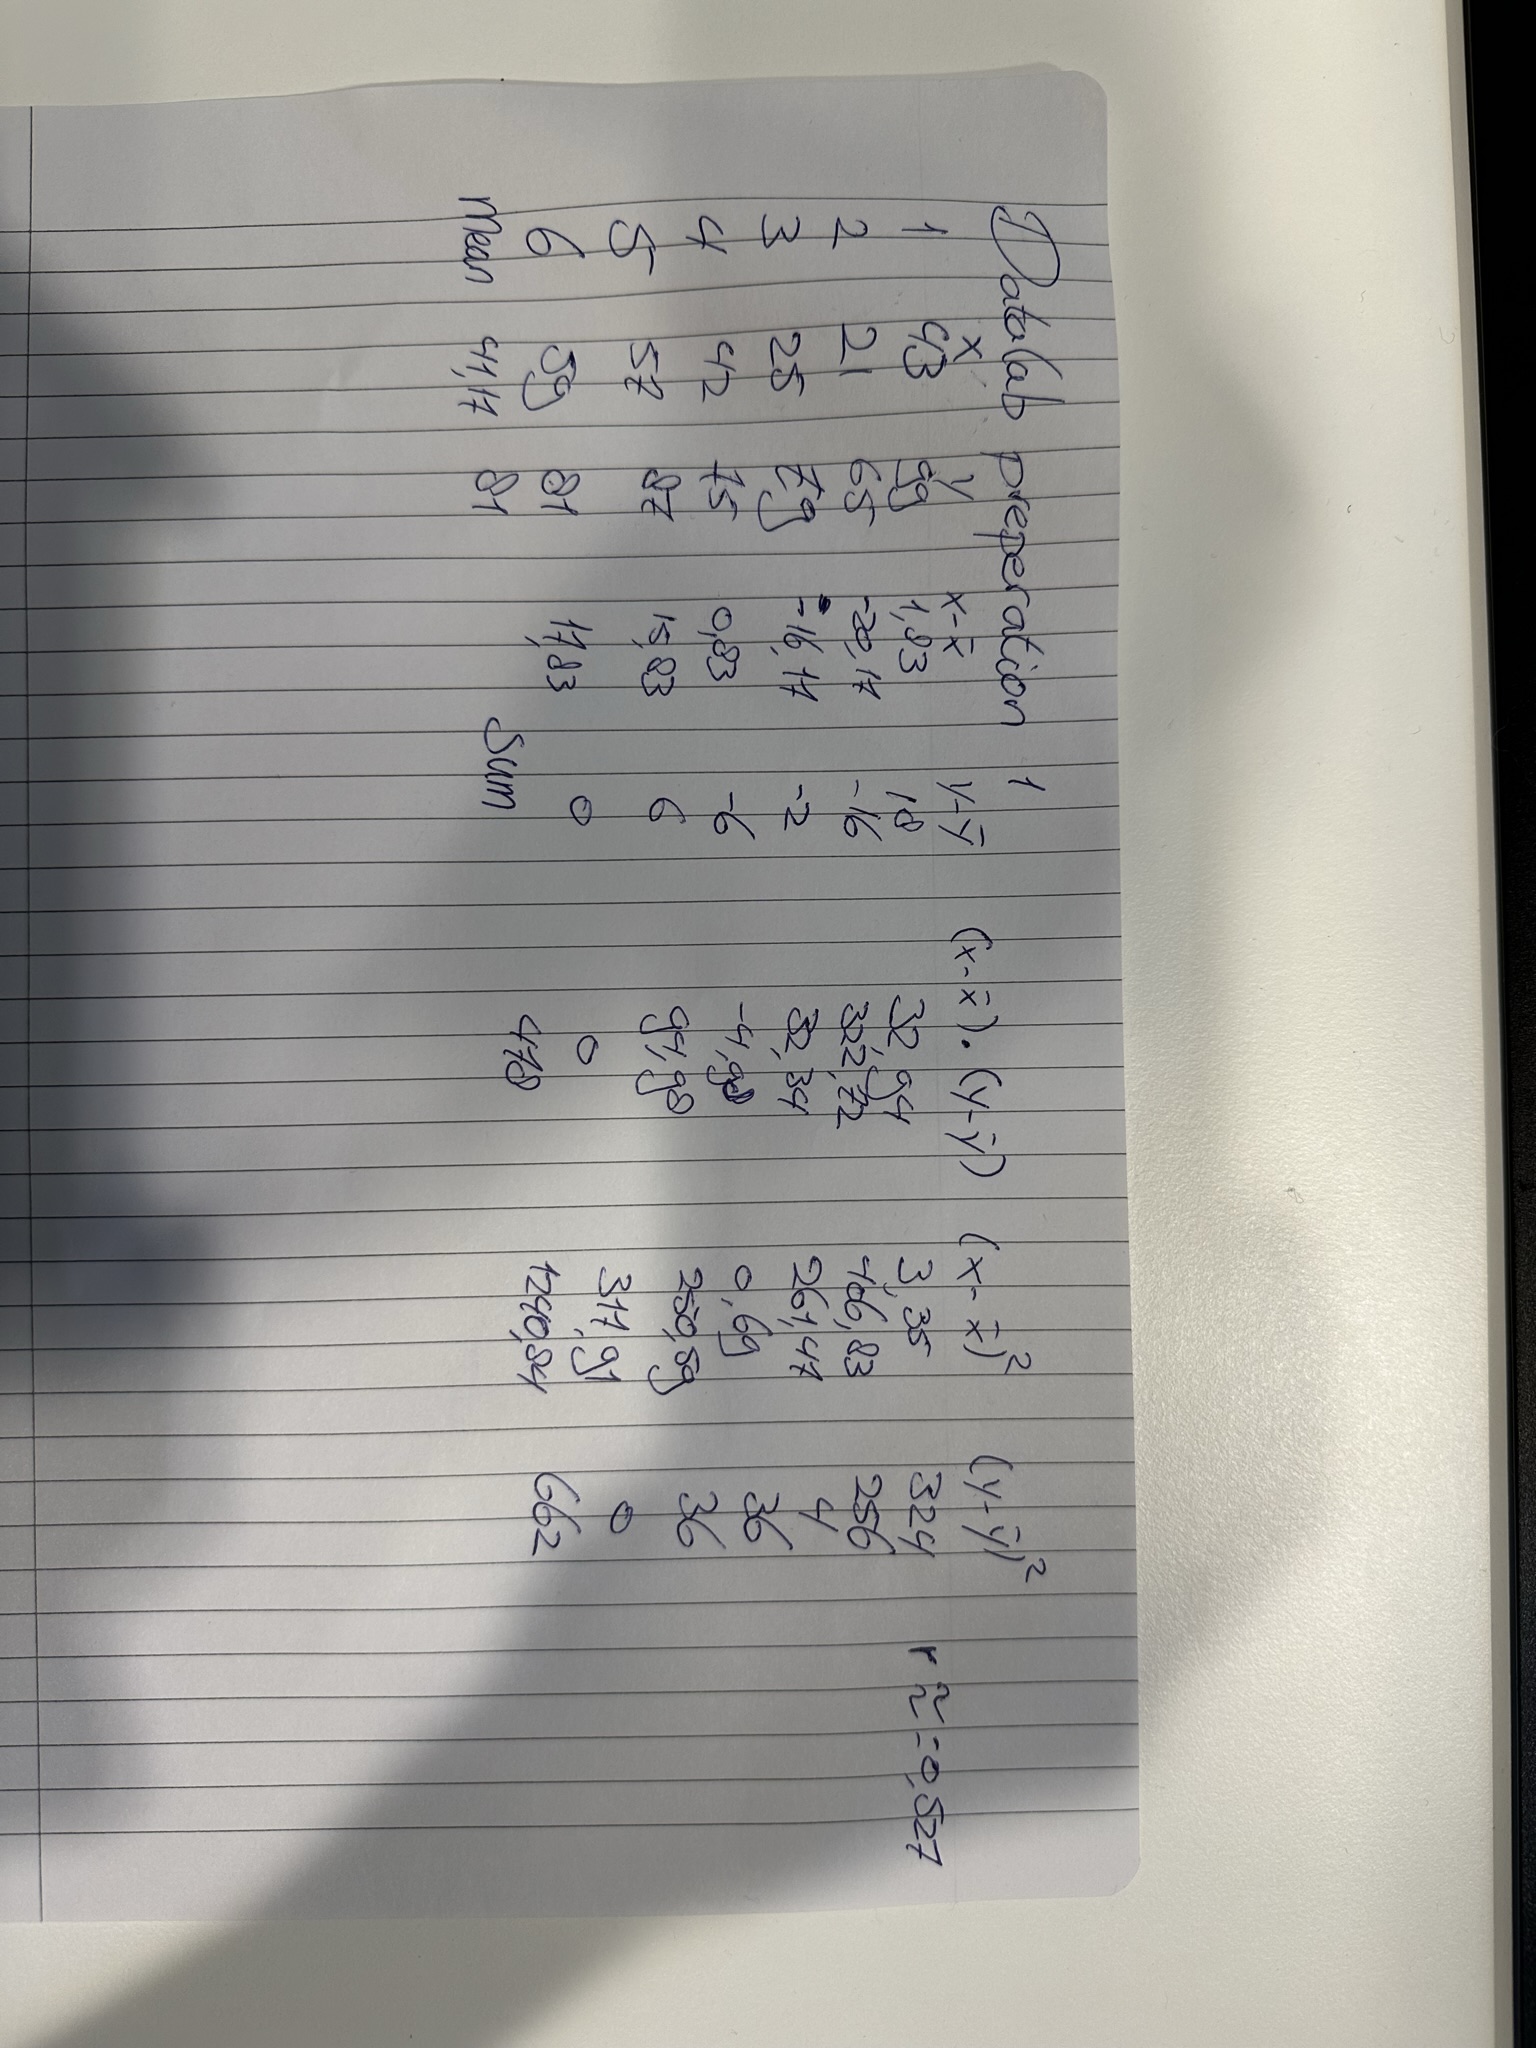 Datalab preperation 1
x y x-x̄ y-ȳ (x-x̄)·(y-ȳ) (x-x̄)² (y-ȳ)²
1 43 99 1,83 18 32,94 3,35 324 r ≈ = 0,527
2 21 65 -20,17 -16 322,72 406,83 256
3 25 79 -16,17 -2 32,34 261,47 4
4 42 75 0,83 -6 -4,98 0,69 36
5 57 87 15,83 6 94,98 250,59 36
6 59 81 17,83 0 0 317,91 0
Mean 41,17 81 Sum 478 1240,84 662